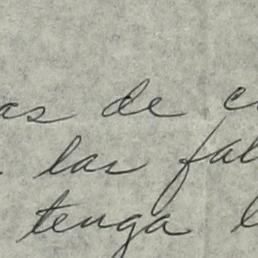 as de
las fal
tenga l